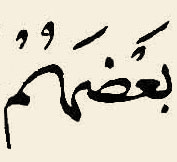 بَعضَهُمُ